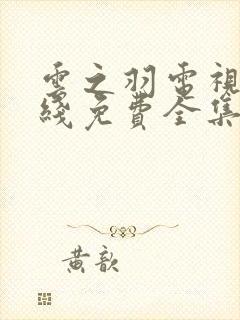 雲之羽電視
綫免費全集
黄歆